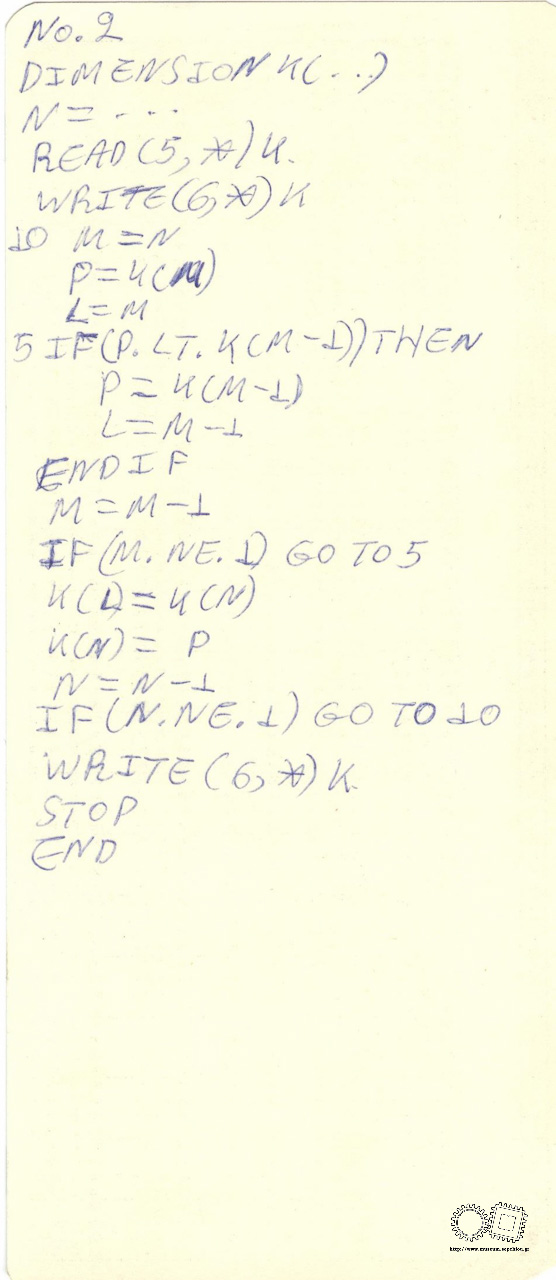 No. 2
DIMENSION K(...)
N = ...
READ(5,*)K.
WRITE(6,*)K
10 M=N
P=K(M)
L=M
5 IF(P.LT.K(M-1))THEN
P=K(M-1)
L=M-1
ENDIF
M=M-1
IF(M.NE.1) GO TO 5
K(L)=K(N)
K(N)= P
N=N-1
IF(N.NE.1) GO TO 10
WRITE(6,*)K.
STOP
END
http://www.museum.sepchiou.gr